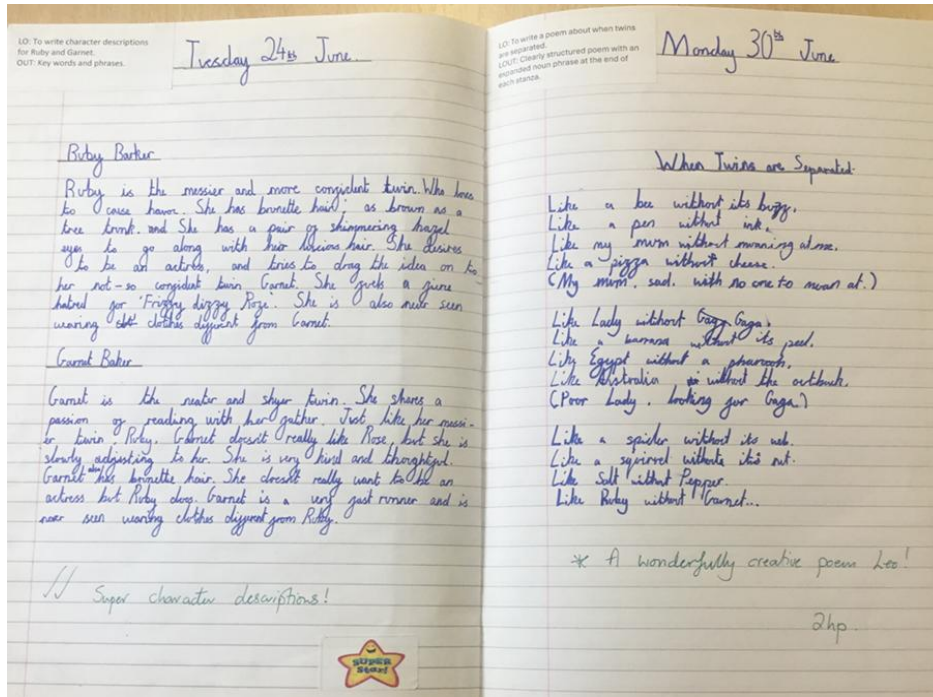 LO: To write character descriptions
for Ruby and Garnet.
OUT: Key words and phrases.
Tuesday 24th June.
Ruby Barker
Ruby is the messier and more confident twin. Who loves
to cause havoc. She has brunette hair, as brown as a
tree trunk. and She has a pair of shimmering hazel
eyes to go along with her lucious hair. She desires
to be an actress, and tries to drag the idea on to
her not-so confident twin Garnet. She feels a
hatred for 'Frizzy dizzy Roze'. She is also
seen
wearing clothes different from Garnet.
Garnet Baker
Garnet is the neater and shyer twin. She shares a
passion of reading with her father. Just like her messi-
er twin, Ruby, Garnet doesn't really like Rose, but she is
slowly adjusting to her. She is very kind and thoughtful.
Garnet also has brunette hair. She doesn't really want to be an
actress but Ruby does. Garnet is a very fast runner and is
never seen wearing clothes different from Ruby.
Super character descriptions!
SUPER
Star!
LO: To write a poem about when twins
are separated.
LOUT: Clearly structured poem with an
expanded noun phrase at the end of
each stanza.
Monday 30th June
When Twins are Separated.
Like a bee without its buzz,
Like a pen without ink,
Like my mum without moaning at me.
Like a pizza without cheese.
(My mum, sad, with no one to moan at.)
Like Lady without Gaga,
Like a banana without its peel.
Like Egypt without a pharaoh,
Like Australia without the outback.
(Poor Lady, looking for Gaga.)
Like a spider without its web.
Like a squirrel without it's nut.
Like Salt without Pepper.
Like Ruby without Garnet...
* A wonderfully creative poem Leo!
2hp.